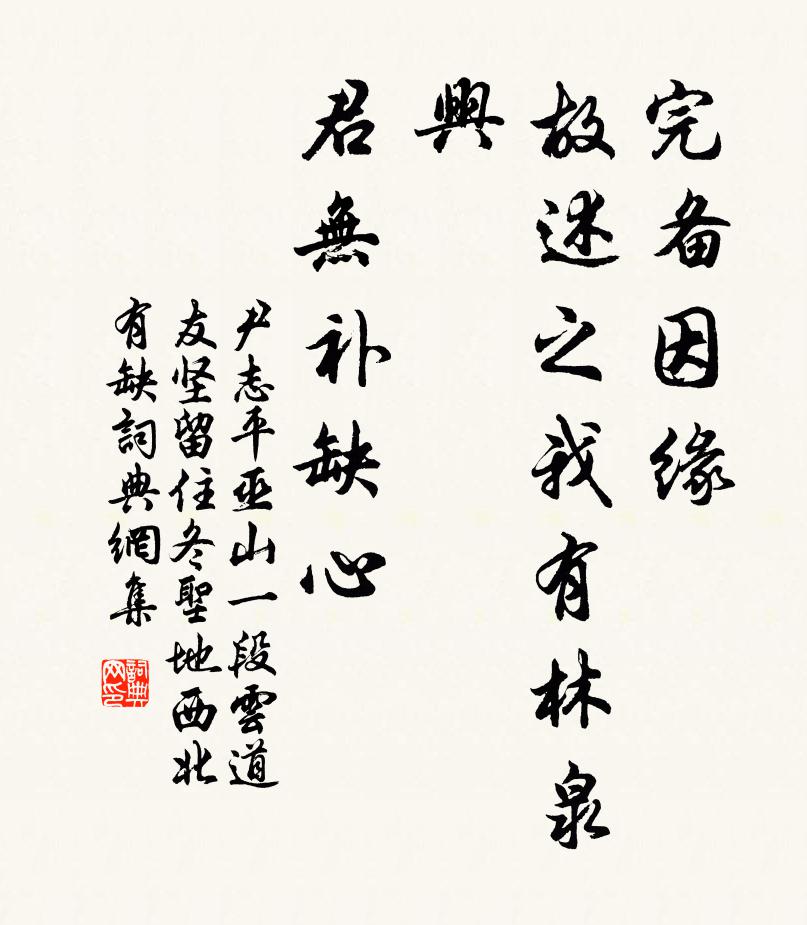 完备因缘
故述之我有林泉
興
君無补缺心
尹志平巫山一段雲道
友坚留住冬聖地西北
有缺詞典網集
詞典网印